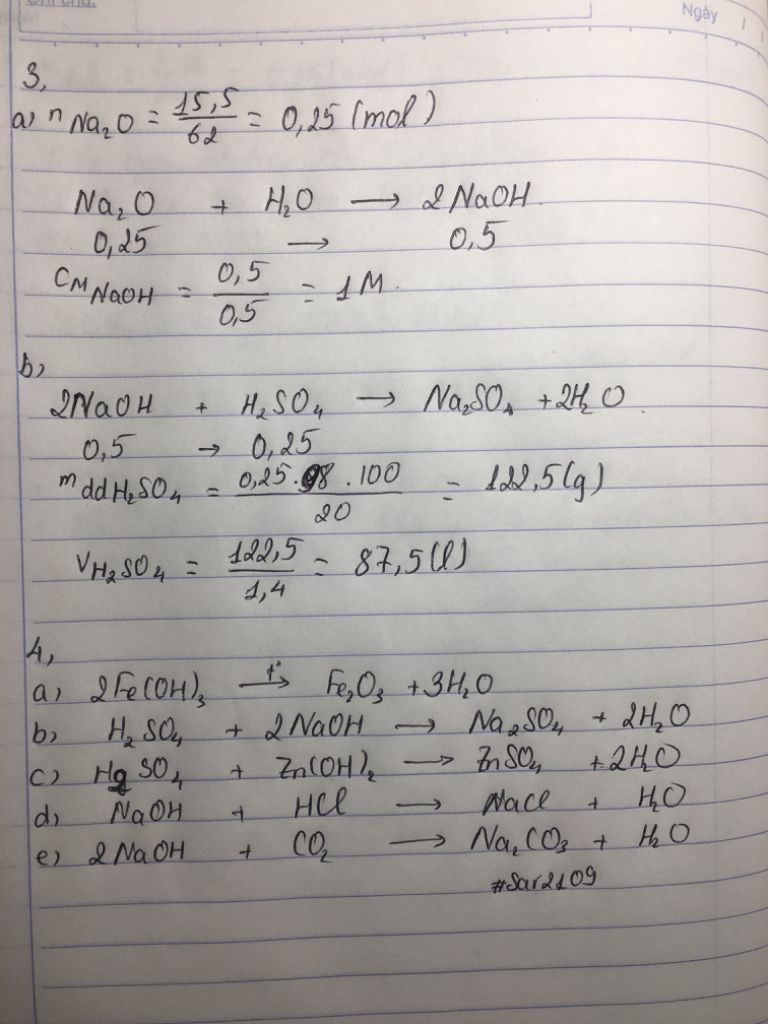 Ngày
3,
a) n Na₂O = 15,5/62 = 0,25 (mol)
Na₂O + H₂O → 2NaOH
0,25 → 0,5
CM NaOH = 0,5/0,5 = 1M.
b)
2NaOH + H₂SO₄ → Na₂SO₄ + 2H₂O.
0,5 → 0,25
m dd H₂SO₄ = 0,25.98.100/20 = 122,5(g)
V H₂SO₄ = 122,5/1,4 = 87,5(l)
4,
a) 2Fe(OH)₃ t°→ Fe₂O₃ + 3H₂O
b) H₂SO₄ + 2NaOH → Na₂SO₄ + 2H₂O
c) HgSO₄ + Zn(OH)₂ → ZnSO₄ + 2H₂O
d) NaOH + HCl → NaCl + H₂O
e) 2NaOH + CO₂ → Na₂CO₃ + H₂O
#Sar2109